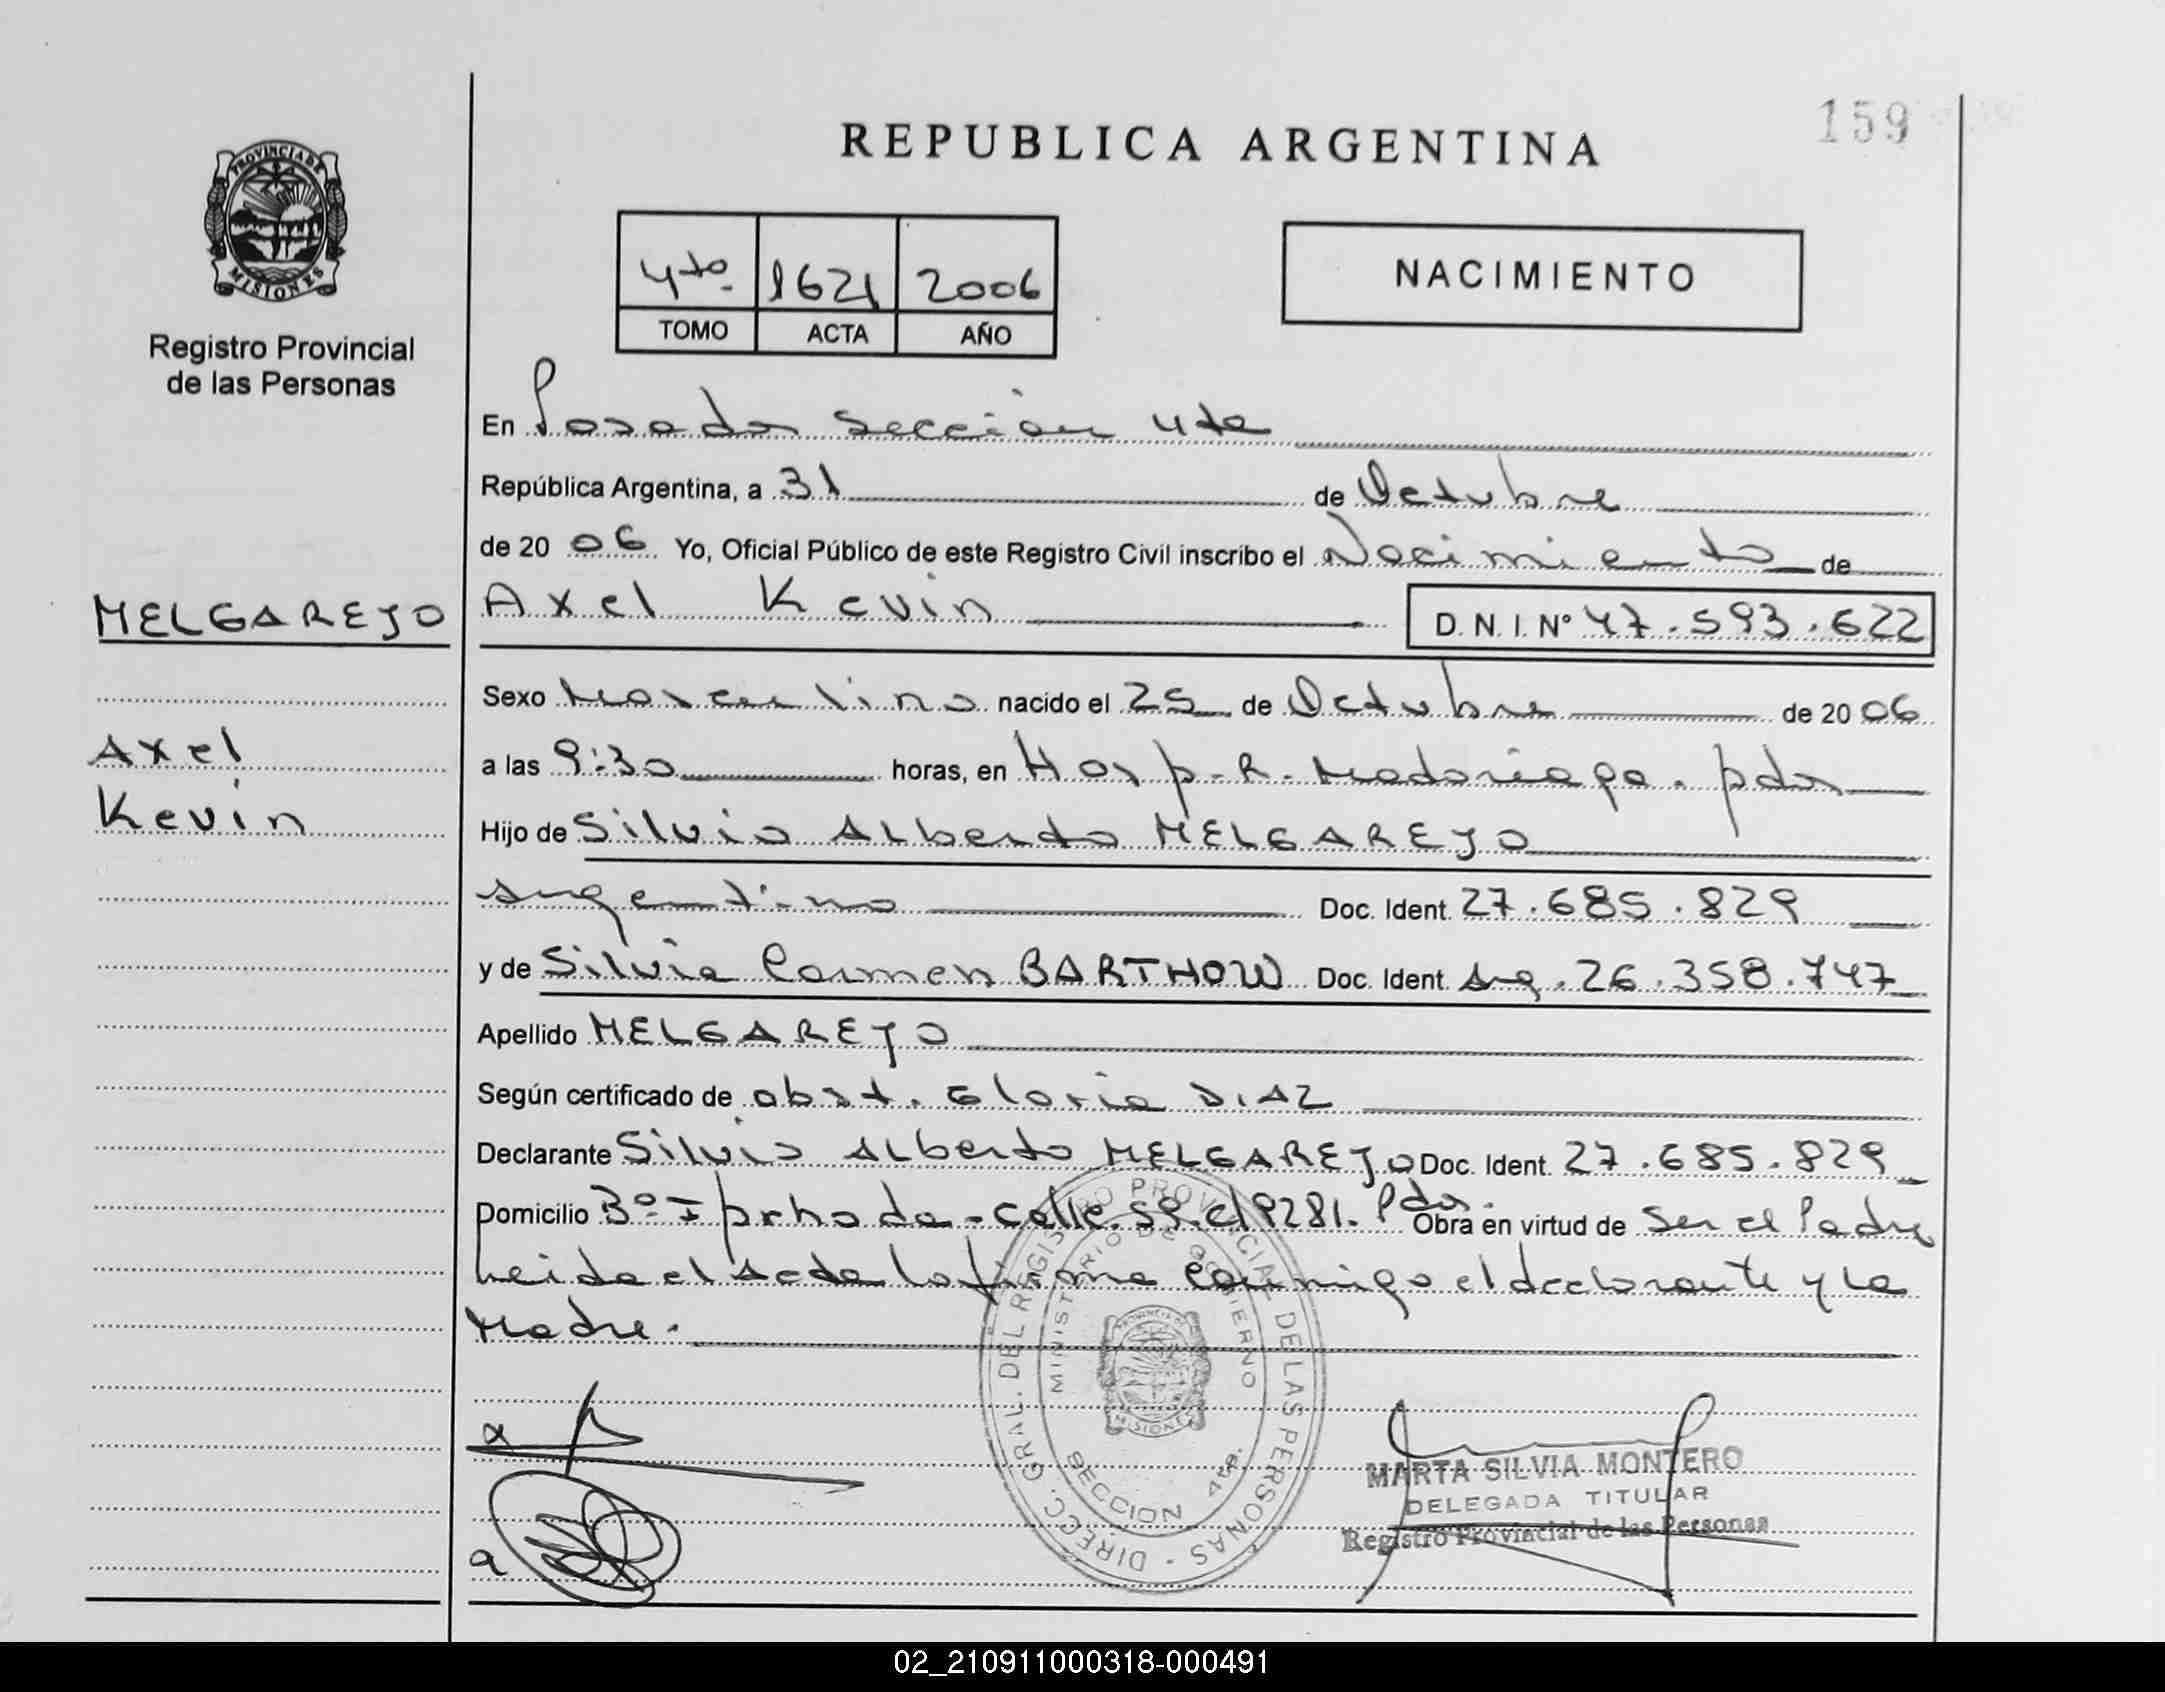 159
REPUBLICA ARGENTINA
PROVINCIA DE
MISIONES
Registro Provincial
de las Personas
4to. 1621 2006
TOMO ACTA AÑO
NACIMIENTO
En Posadas Sección 4ta
República Argentina, a 31 de Octubre
de 2006 Yo, Oficial Público de este Registro Civil inscribo el Nacimiento de
MELGAREJO
Axel Kevin D. N. I. Nº 47.593.622
Sexo Masculino nacido el 25 de Octubre de 2006
Axel
a las 9:30 horas, en Hosp. R. Madariaga. pdas
Kevin
Hijo de Silvio Alberto MELGAREJO
Argentino Doc. Ident. 27.685.829
y de Silvia Carmen BARTHOW Doc. Ident. Arg. 26.358.747
Apellido MELGAREJO
Según certificado de obst. Gloria DIAZ
Declarante Silvio Alberto MELGAREJO Doc. Ident. 27.685.829
Domicilio Bº calle 59 Pdas. Obra en virtud de Ser el Padre
Leida el Acta la firma conmigo el declarante y la
Madre.
DIRECC. GRAL. DEL REGISTRO PROVINCIAL DE LAS PERSONAS
MINISTERIO DE GOBIERNO
PROVINCIA DE
MISIONES
SECCION 4ta.
MARTA SILVIA MONTERO
DELEGADA TITULAR
Registro Provincial de las Personas
02_210911000318-000491